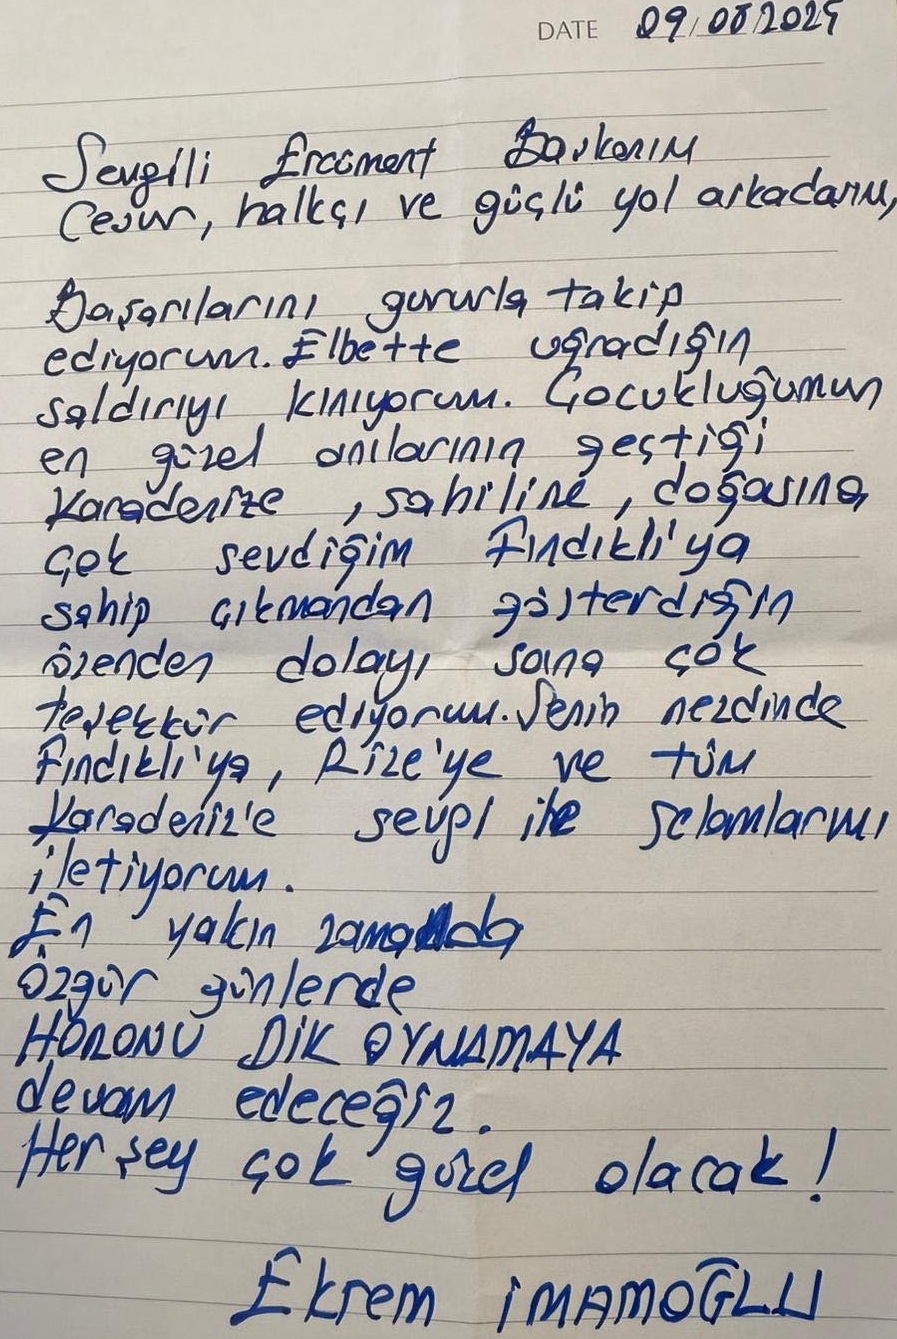 DATE 09/08/2025
Sevgili Ercüment Başkanım
Cesur, halkçı ve güçlü yol arkadaşım,
Başarılarını gururla takip
ediyorum. Elbette uğradığın
saldırıyı kınıyorum. Çocukluğumun
en güzel anılarının geçtiği
Karadenize, sahiline, doğasına
çok sevdiğim Fındıklı'ya
sahip çıkmandan gösterdiğin
özenden dolayı sana çok
teşekkür ediyorum. Senin nezdinde
Fındıklı'ya, Rize'ye ve tüm
Karadeniz'e sevgi ile selamlarımı
iletiyorum.
En yakın zamanda
Özgür günlerde
HORONU DİK OYNAMAYA
devam edeceğiz.
Her şey çok güzel olacak!
Ekrem İMAMOĞLU